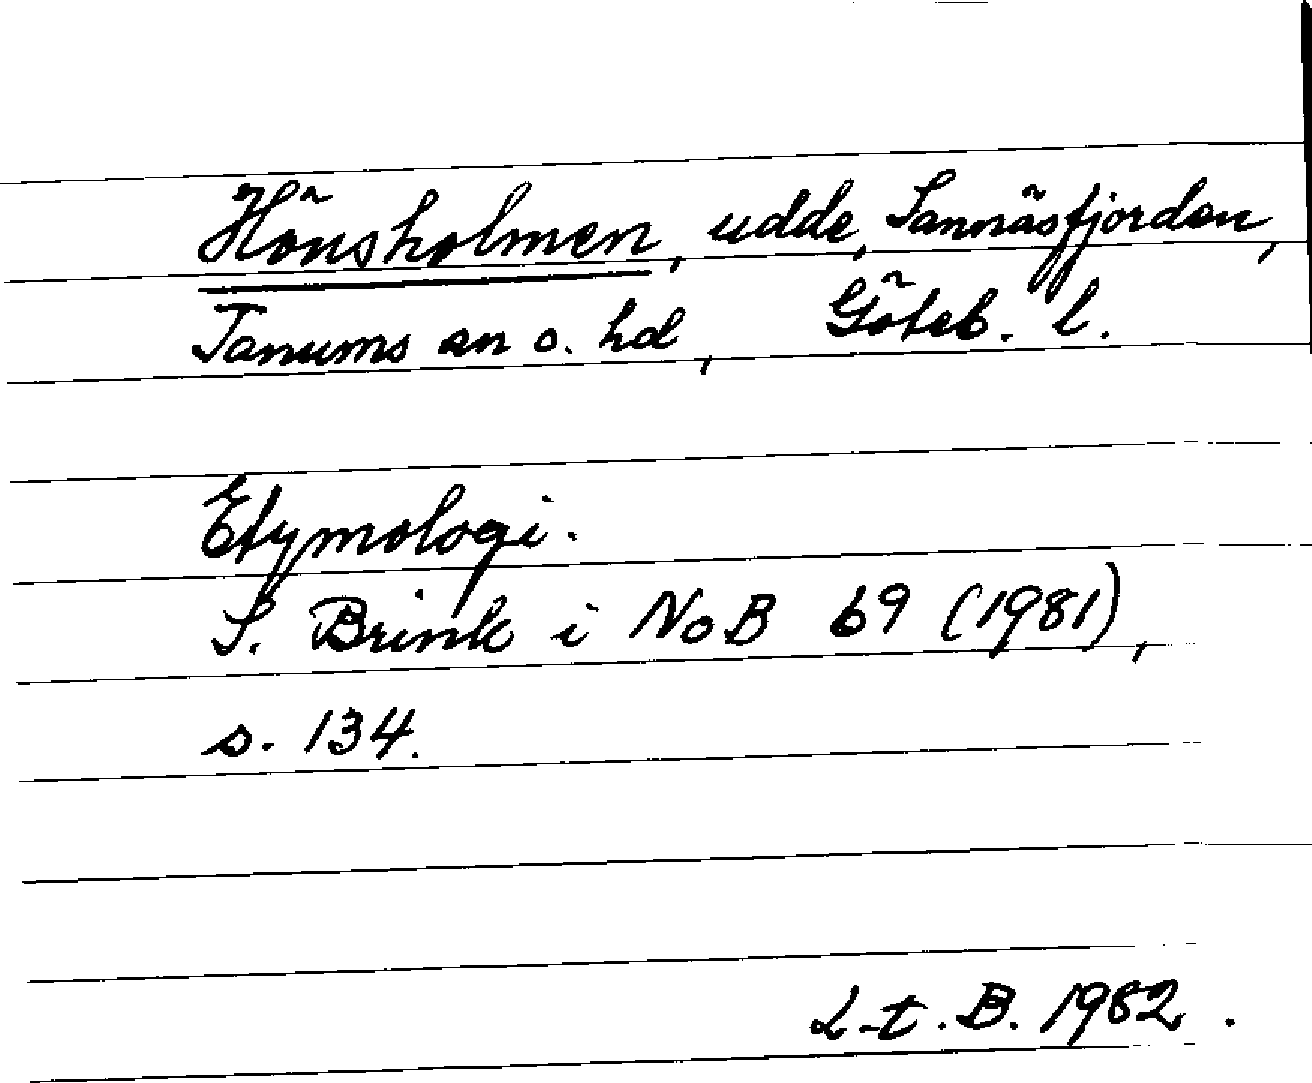 Hönsholmen, udde, Sannäsfjorden,
Tanums sn o. hd, Göteb. l.
Etymologi.
S. Brink i NoB 69 (1981),
s. 134.
L-t. B. 1982.